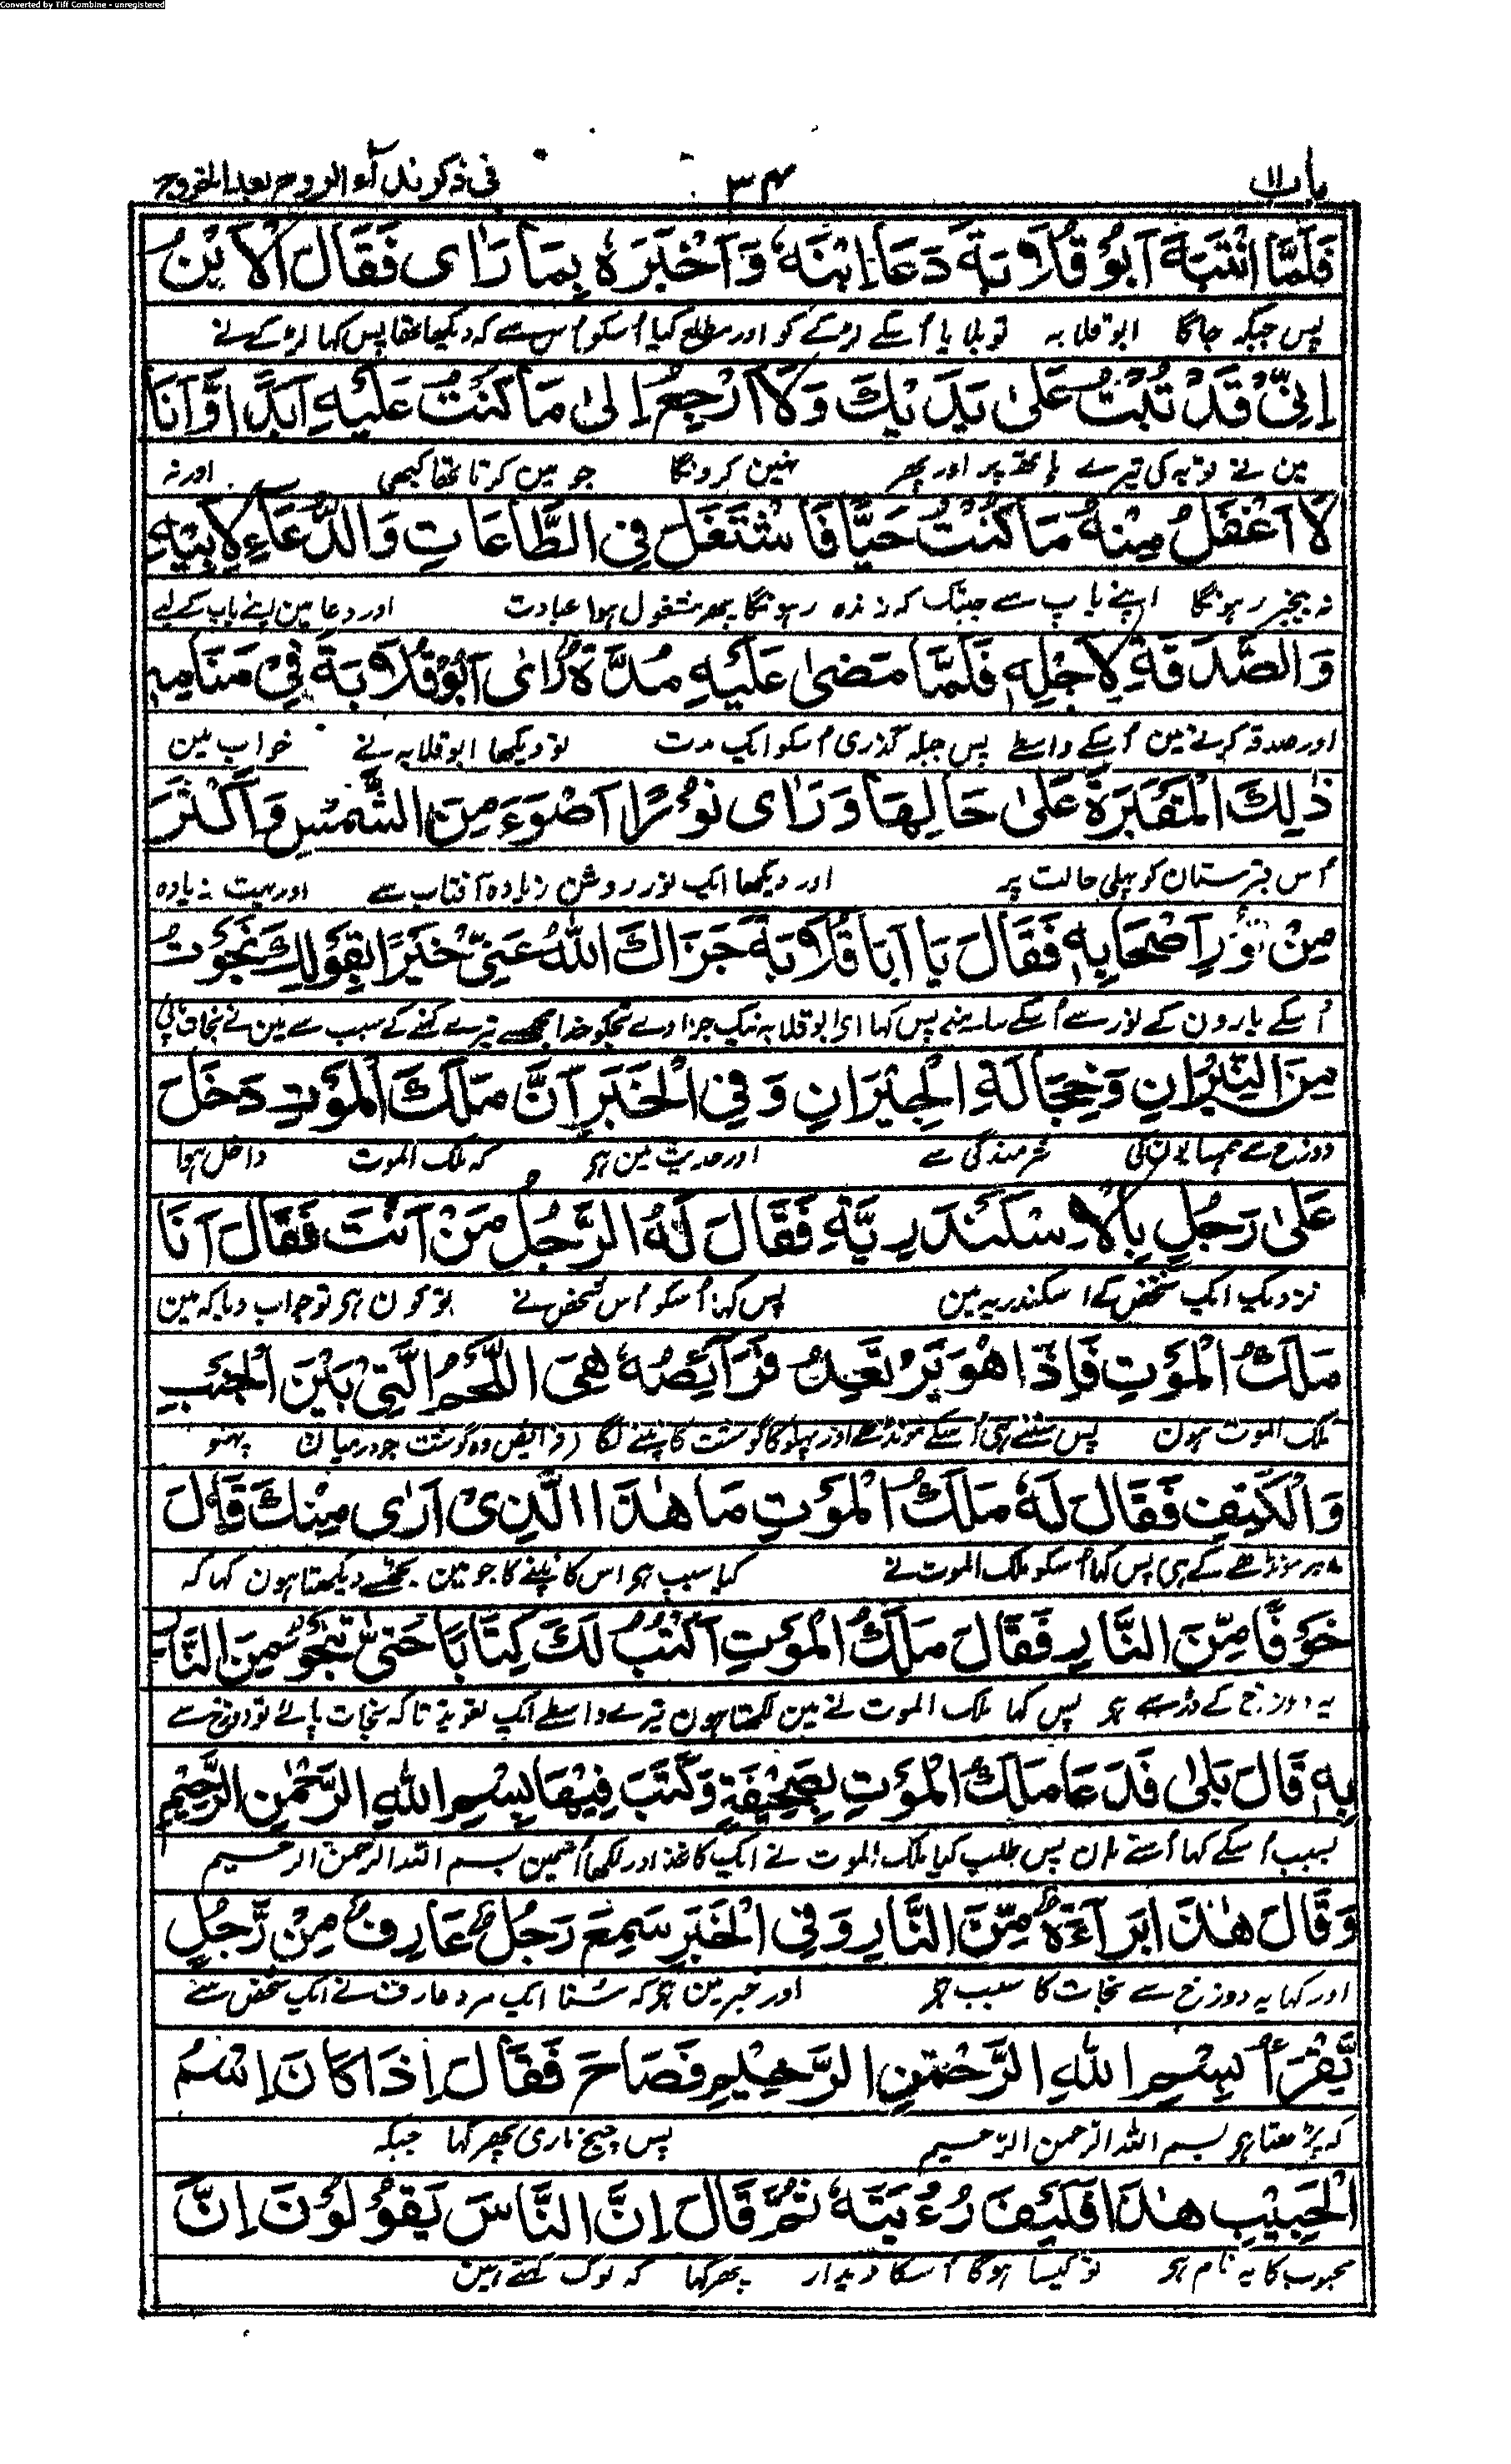 Converted by Tiff Combine - unregistered
باب ۱۱ ۳۴ فی ذکر ندآء الروح بعد الخروج
فَلَمَّا انْتَبَهَ اَبُوْ قُلَابَةَ دَعَا اِبْنَهٗ وَاَخْبَرَهٗ بِمَا رَاٰى فَقَالَ الْاِبْنُ
پس جبکہ جاگا ابو قلابہ تو بلایا اُسکے لڑکے کو اور مطلع کیا اُسکو اُس سے کہ دیکھا تھا پس کہا لڑکے نے
اِنِّیْ قَدْ تُبْتُ عَلٰى یَدَیْكَ وَلَا اَرْجِعُ اِلٰى مَا كُنْتُ عَلَیْهِ اَبَدًا وَّاَنَا
مین نے توبہ کی تیرے ہاتھ پر اور پھر نہین کرونگا جو مین کرتا تھا کبھی اور نہ
لَا اَغْفَلُ مِنْهُ مَا كُنْتُ حَیًّا فَاشْتَغَلَ فِی الطَّاعَاتِ وَالدُّعَاءِ لِاَبِیْهِ
نہ بیخبر رہونگا اپنے باپ سے جبتک کہ زندہ رہونگا پھر مشغول ہوا عبادت اور دعا مین اپنے باپ کے لیے
وَالصَّدَقَةِ لِاَجْلِهٖ فَلَمَّا مَضٰى عَلَیْهِ مُدَّةٌ رَاٰى اَبُوْ قُلَابَةَ فِیْ مَنَامِهٖ
اور صدقہ کرنے مین اُسکے واسطے پس جبکہ گذری اُسکو ایک مدت تو دیکھا ابو قلابہ نے خواب مین
ذٰلِكَ الْمَقْبَرَةَ عَلٰى حَالِهَا وَرَاٰى نُوْرًا اَضْوَءَ مِنَ الشَّمْسِ وَاَكْثَرَ
اُس قبرستان کو پہلی حالت پر اور دیکھا ایک نور روشن زیادہ آفتاب سے اور بہت زیادہ
مِنْ نُوْرِ اَصْحَابِهٖ فَقَالَ یَا اَبَا قُلَابَةَ جَزَاكَ اللّٰهُ عَنِّیْ خَیْرًا بِقَوْلِكَ نَجَوْتُ
اُسکے یارون کے نور سے اُسکے سامنے پس کہا ای ابو قلابہ نیک جزا دے تجکو خدا مجھسے تیرے کہنے کے سبب سے مین نے نجات پائی
مِنَ النِّیْرَانِ وَخِجَالَةِ الْجِیْرَانِ وَفِی الْخَبَرِ اَنَّ مَلَكَ الْمَوْتِ دَخَلَ
دوزخ سے ہمسایون کی شرمندگی سے اور حدیث مین ہی کہ ملک الموت داخل ہوا
عَلٰى رَجُلٍ بِالْاِسْكَنْدَرِیَّةِ فَقَالَ لَهُ الرَّجُلُ مَنْ اَنْتَ فَقَالَ اَنَا
نزدیک ایک شخص کے اسکندریہ مین پس کہا اُسکو اُس شخص نے تو کون ہی تو جواب دیا کہ مین
مَلَكُ الْمَوْتِ فَاِذَا هُوَ یَرْتَعِدُ فَرَآئِصُهٗ هِیَ اللَّحْمُ الَّتِیْ بَیْنَ الْجَنْبِ
ملک الموت ہون پس سنتے ہی اُسکے مونڈھے اور پہلو کا گوشت کانپنے لگا (فرائض وہ گوشت جو درمیان پہلو
وَالْكَتِفِ فَقَالَ لَهٗ مَلَكُ الْمَوْتِ مَا هٰذَا الَّذِیْ اَرٰى مِنْكَ قَالَ
اور مونڈھے کے ہی پس کہا اُسکو ملک الموت نے کیا سبب ہی اس کانپنے کا جو مین تجھسے دیکھتا ہون کہا کہ
خَوْفًا مِّنَ النَّارِ فَقَالَ مَلَكُ الْمَوْتِ اَكْتُبُ لَكَ كِتَابًا حَتّٰى تَنْجُوَ مِنَ النَّارِ
یہ دوزخ کے ڈر سے ہی پس کہا ملک الموت نے مین لکھتا ہون تیرے واسطے ایک تعویذ تاکہ نجات پائے تو دوزخ سے
بِهٖ قَالَ بَلٰى فَدَعَا مَلَكُ الْمَوْتِ بِصَحِیْفَةٍ وَكَتَبَ فِیْهَا بِسْمِ اللّٰهِ الرَّحْمٰنِ الرَّحِیْمِ
بسبب اُسکے کہا اُسنے ہان پس طلب کیا ملک الموت نے ایک کاغذ اور لکھا اُسمین بسم اللہ الرحمن الرحیم
وَقَالَ هٰذَا بَرَآءَةٌ مِّنَ النَّارِ وَفِی الْخَبَرِ سَمِعَ رَجُلٌ عَارِفٌ مِنْ رَّجُلٍ
اور کہا یہ دوزخ سے نجات کا سبب ہی اور خبر مین ہی کہ سنا ایک مرد عارف نے ایک شخص سے
یَّقْرَأُ بِسْمِ اللّٰهِ الرَّحْمٰنِ الرَّحِیْمِ فَصَاحَ فَقَالَ اِذَا كَانَ اِسْمُ
کہ پڑھتا ہی بسم اللہ الرحمن الرحیم پس چیخ ماری پھر کہا جبکہ
الْحَبِیْبِ هٰذَا فَكَیْفَ رُءْیَتُهٗ ثُمَّ قَالَ اِنَّ النَّاسَ یَقُوْلُوْنَ اِنَّ
محبوب کا یہ نام ہی تو کیسا ہوگا اُسکا دیدار پھر کہا کہ لوگ کہتے ہین